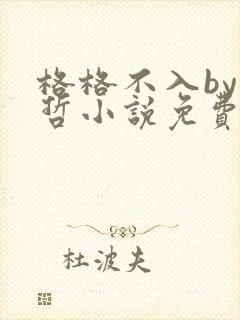 格格不入by
哲小說免費
杜波夫